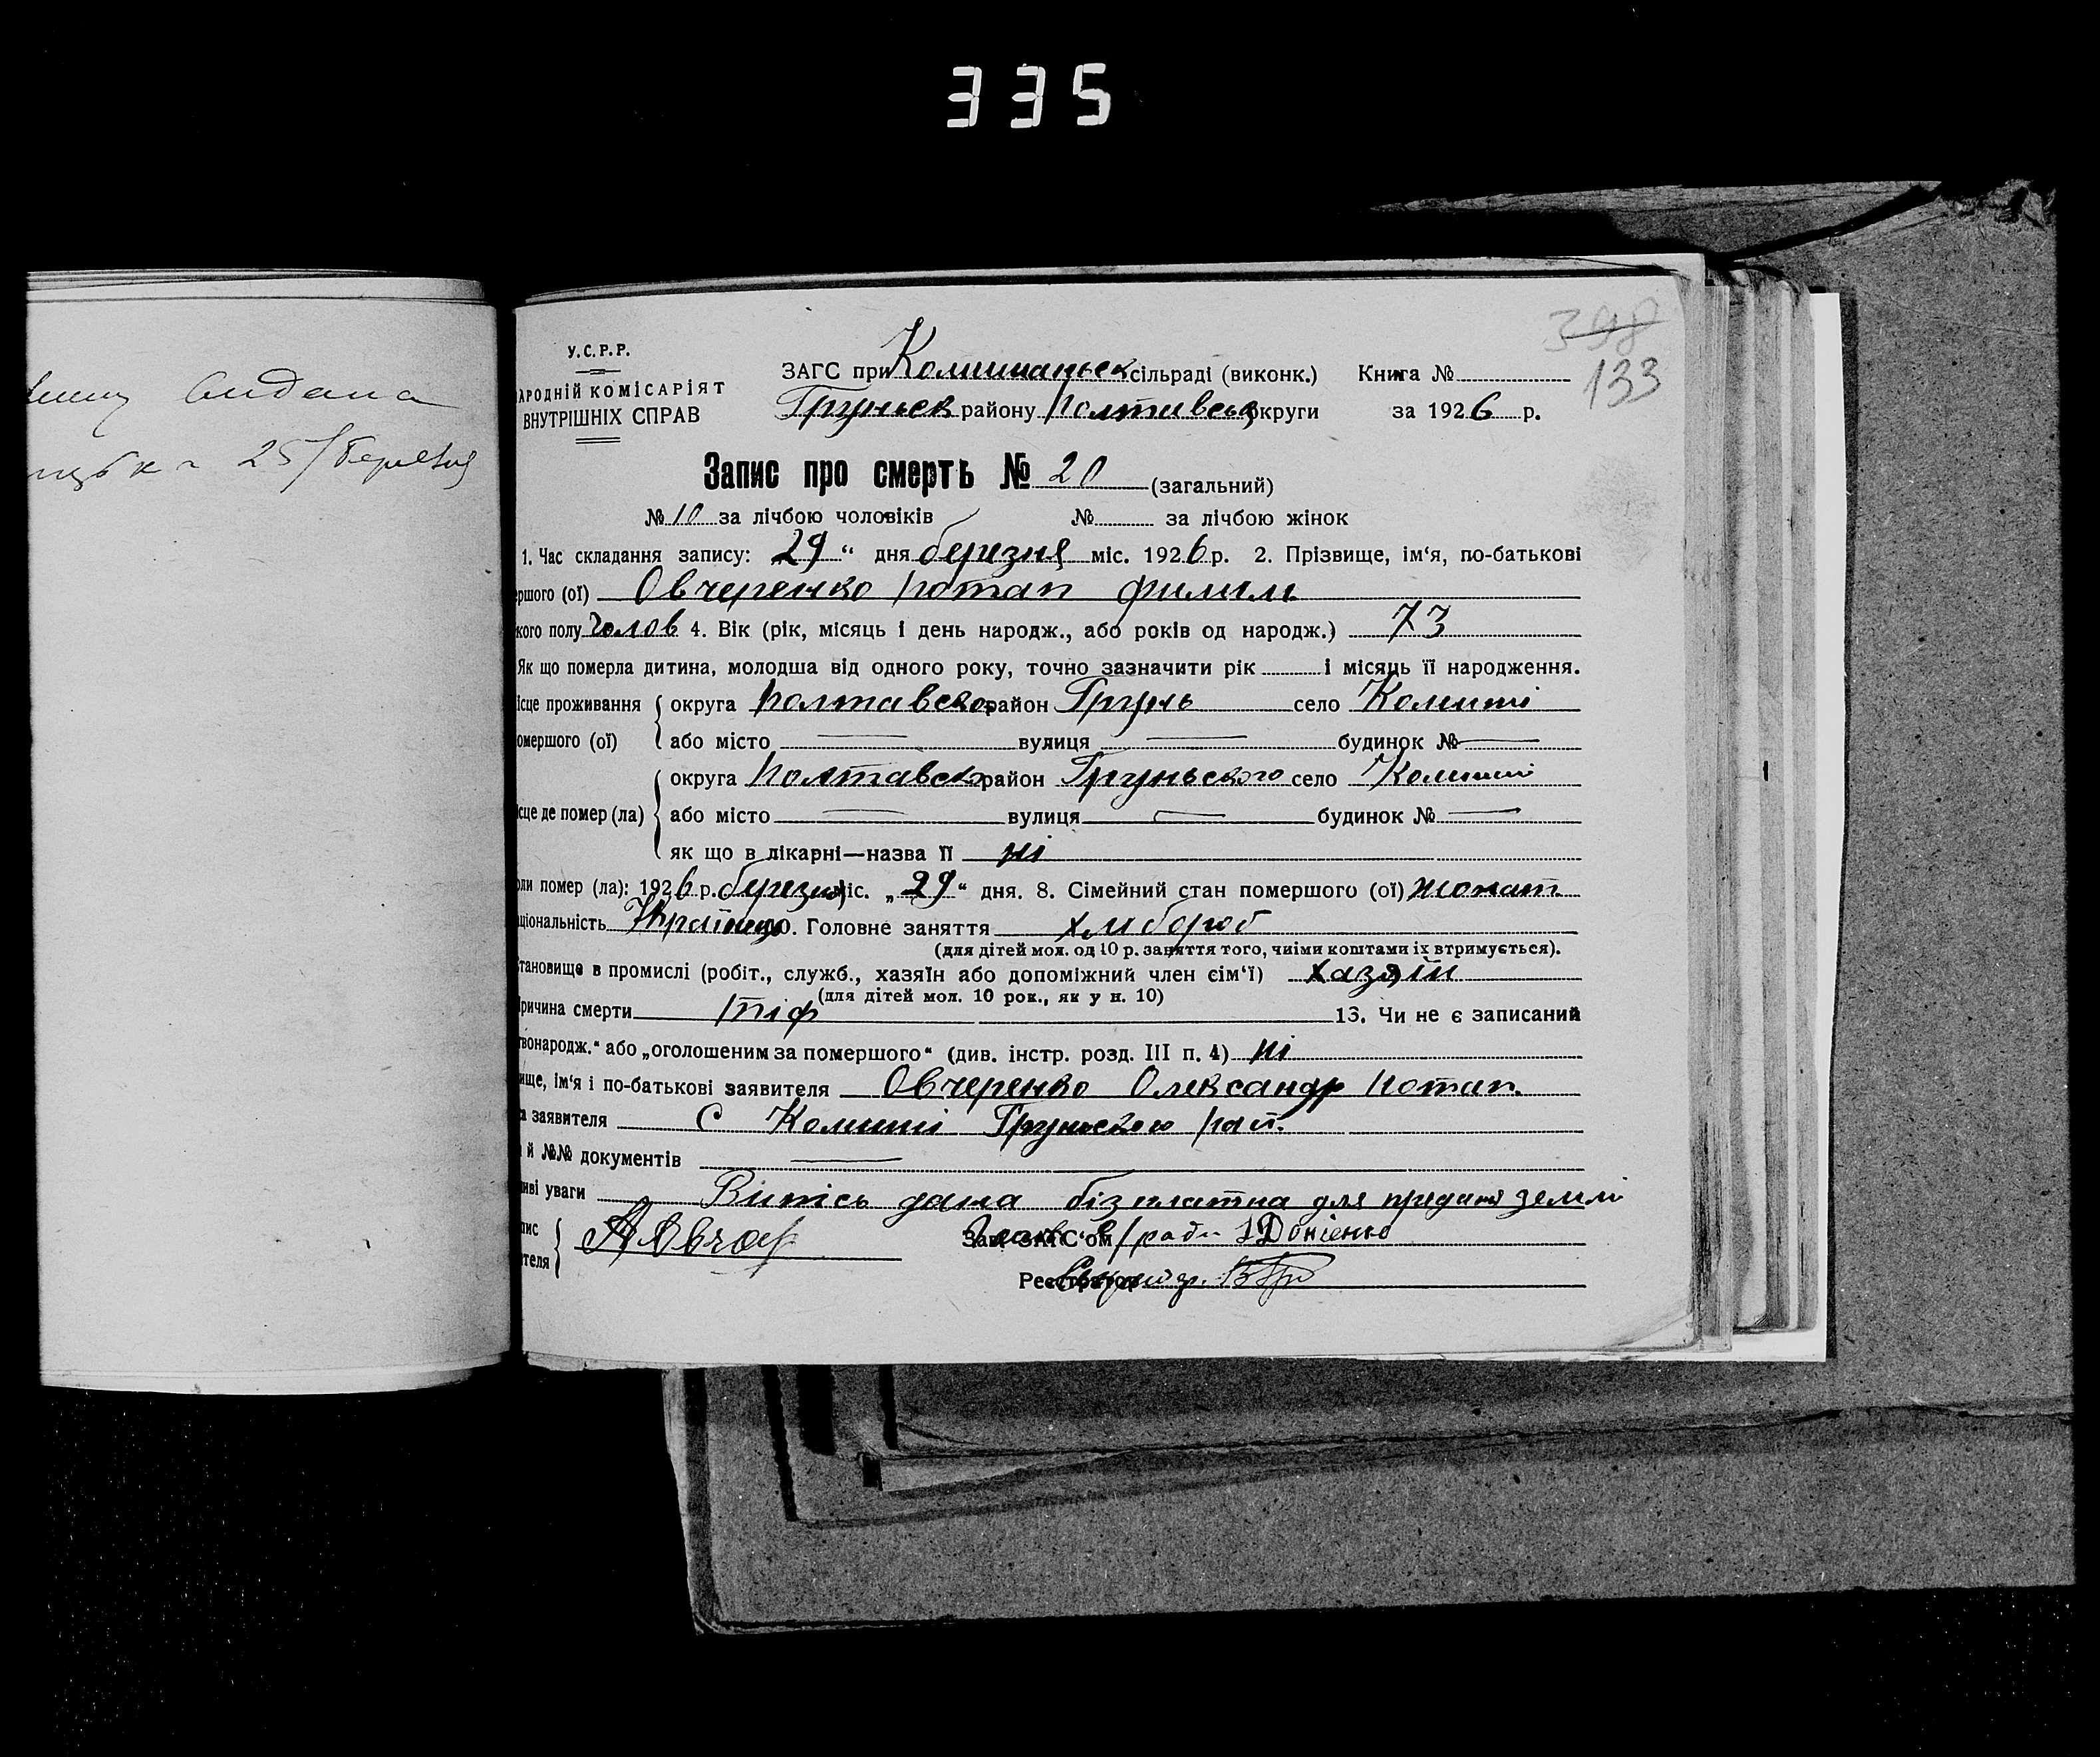 335
видана
25/березня
398
133
У.С.Р.Р.
АРОДНІЙ КОМІСАРІЯТ
ВНУТРІШНІХ СПРАВ
ЗАГС при Комишанськ сільраді (виконк.) Книга №
Груньск району Полтавськ округи за 1926 р.
Запис про смерть № 20 (загальний)
№ 10 за лічбою чоловіків № за лічбою жінок
1. Час складання запису: 29 “ дня березня міс. 1926 р. 2. Прізвище, ім‘я, по-батькові
ршого (ої) Овчеренко Потап Филим
кого полу Голов 4. Вік (рік, місяць і день народж., або років од народж.) 73
Як що померла дитина, молодша від одного року, точно зазначити рік і місяць її народження.
ісце проживання округа Полтавсько район Грунь село Комиші
омершого (ої) або місто — вулиця — будинок № —
округа Полтавсько район Груньского село Комиші
ісце де помер (ла) або місто — вулиця — будинок № —
як що в лікарні—назва її ні
оли помер (ла): 1926 р. березня міс. „29“ дня. 8. Сімейний стан помершого (ої) жонат
ціональність Украінец 10. Головне заняття хлибороб
(для дітей мол. од 10 р. заняття того, чиїми коштами їх втримується).
становище в промислі (робіт., служб., хазяїн або допоміжний член сім‘ї) хазяїн
(для дітей мол. 10 рок., як у н. 10)
ричина смерти тіф 13. Чи не є записаний
твонародж.“ або „оголошеним за помершого“ (див. інстр. розд. III п. 4) ні
ище, ім‘я і по-батькові заявителя Овчеренко Олександр Потап.
а заявителя С Комиші Груньского рай.
і й №№ документів —
иві уваги Випісь дана бізплатна для придания землі
пис А Овчар Зав. ЗАГС‘ом ради Доніенко
ителя
Реєстратор